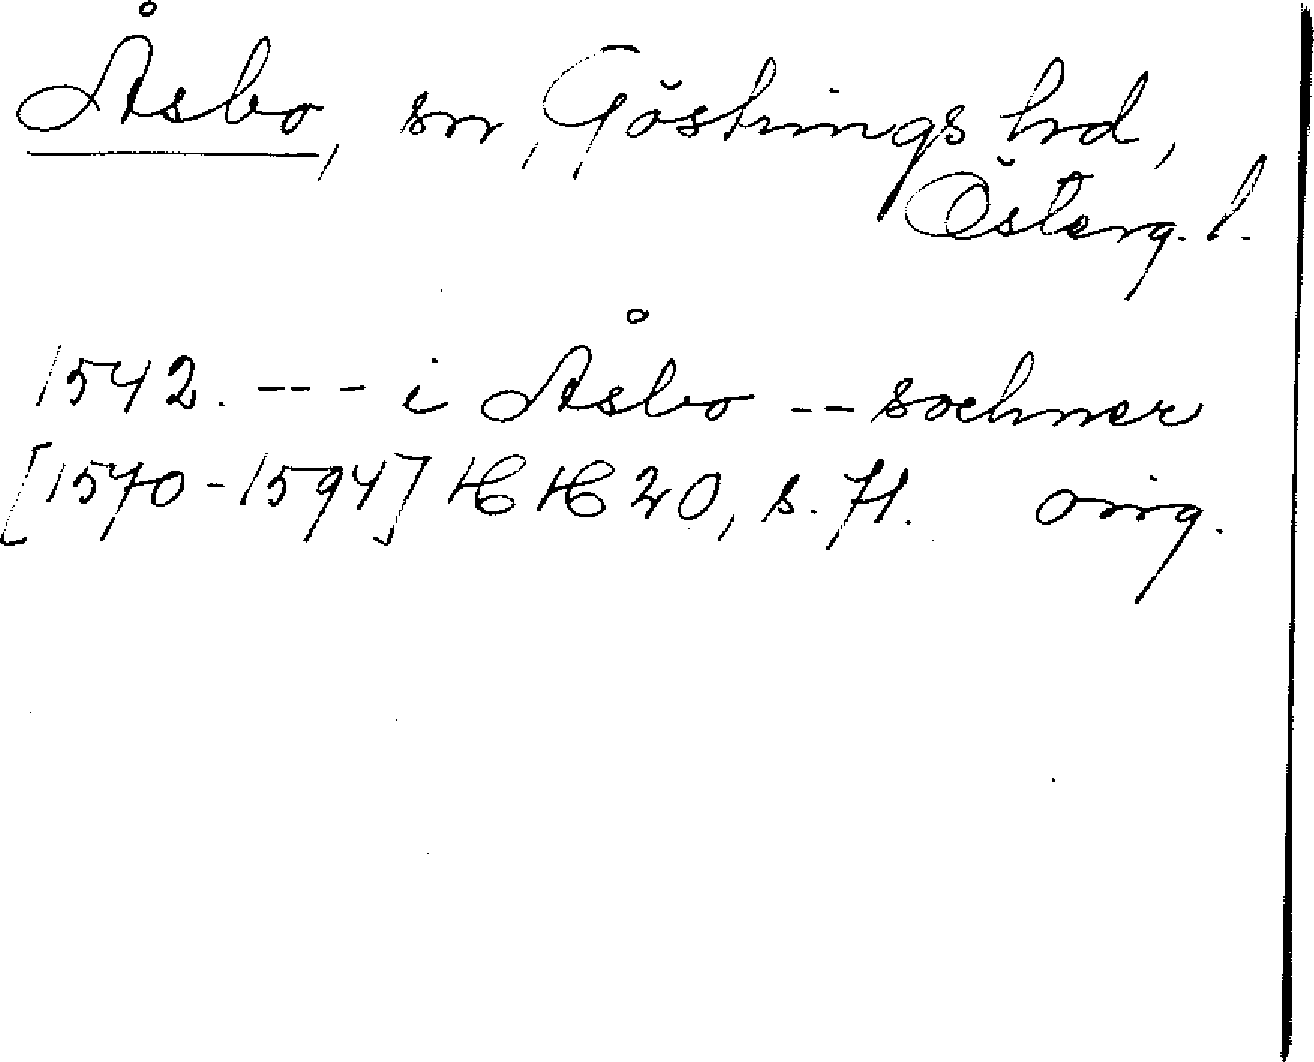 Åsbo, sn, Göstrings hrd,
Österg. l.
1542. --- i Åsbo -- sochner
[1570-1594] HH 20, s. 71. orig.